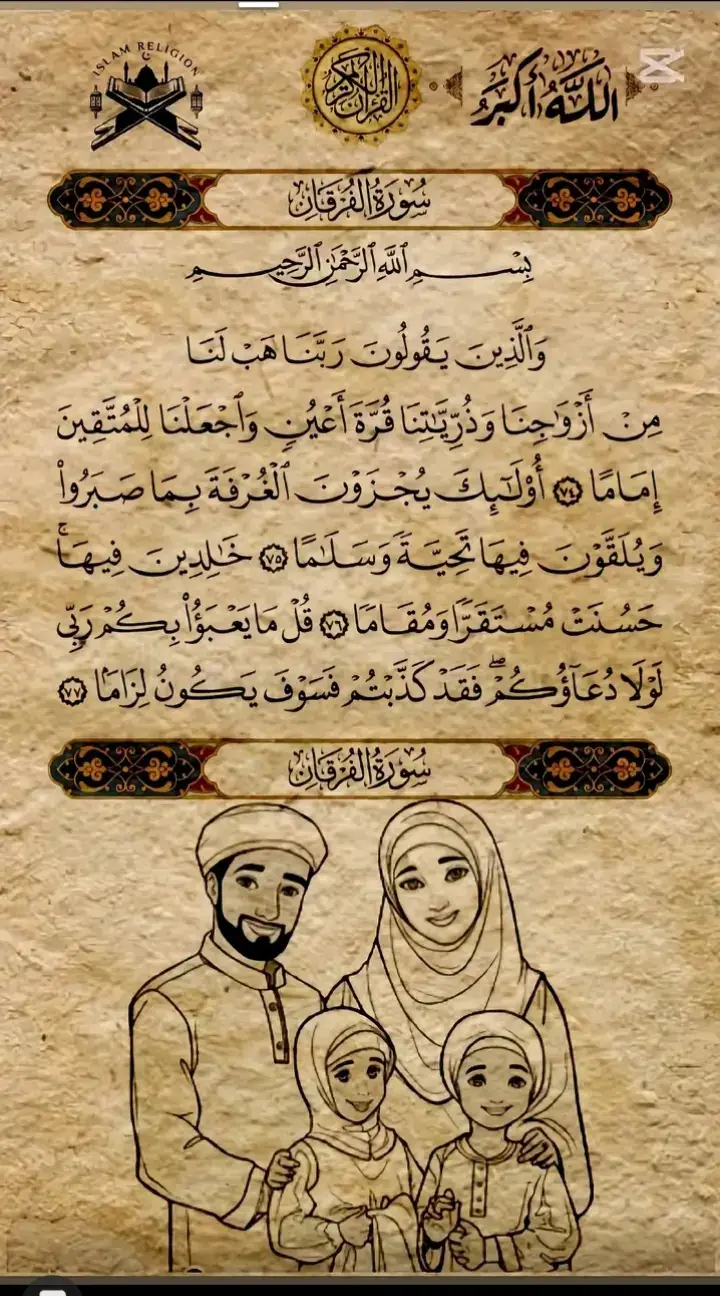 ISLAM RELIGION
القرآن الكريم
اللَّهُ أَكْبَرُ
سُورَةُ الْفُرْقَانِ
بِسْمِ ٱللَّهِ ٱلرَّحْمَٰنِ ٱلرَّحِيمِ
وَٱلَّذِينَ يَقُولُونَ رَبَّنَا هَبْ لَنَا
مِنْ أَزْوَٰجِنَا وَذُرِّيَّٰتِنَا قُرَّةَ أَعْيُنٍ وَٱجْعَلْنَا لِلْمُتَّقِينَ
إِمَامًا ٧٤ أُو۟لَٰٓئِكَ يُجْزَوْنَ ٱلْغُرْفَةَ بِمَا صَبَرُوا۟
وَيُلَقَّوْنَ فِيهَا تَحِيَّةً وَسَلَٰمًا ٧٥ خَٰلِدِينَ فِيهَا ۚ
حَسُنَتْ مُسْتَقَرًّا وَمُقَامًا ٧٦ قُلْ مَا يَعْبَؤُا۟ بِكُمْ رَبِّى
لَوْلَا دُعَآؤُكُمْ ۖ فَقَدْ كَذَّبْتُمْ فَسَوْفَ يَكُونُ لِزَامًۢا ٧٧
سُورَةُ الْفُرْقَانِ